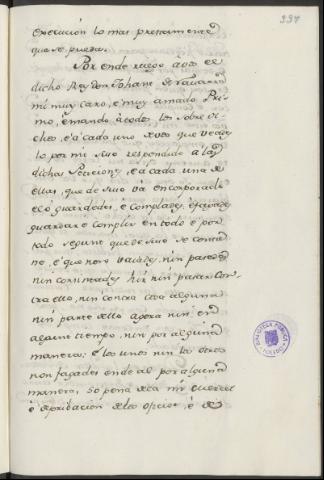 337
execucion lo mas prestamente
que se pueda.
Por ende ruego a vos el
dicho Rey don Johan de Navarra
mi muy caro, e muy amado Pri-
mo, e mando a todos los sobre di-
chos, e a cada uno de vos que veades
lo por mi suso respondido a las
dichas Peticiones, e a cada una de
ellas, que de suso va encorporado
e lo guardedes, e complades, e fagades
guardar e complir en todo e por
todo segunt que de suso se contie-
ne, e que non vaiades, nin pasedes
nin consintades hir nin pasar con-
tra ello, nin contra cosa alguna
nin parte dello agora nin en
algunt tiempo, nin por alguna
manera; e los unos nin los otros
non fagades ende al por alguna
manera, so pena de la mi merced
e de privacion de los oficios, e de
BIBLIOTECA PUBLICA
TOLEDO